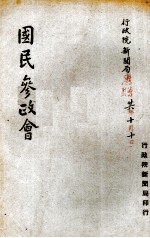 行政院新聞局
十月十日
國民參政會
行政院新聞局印行